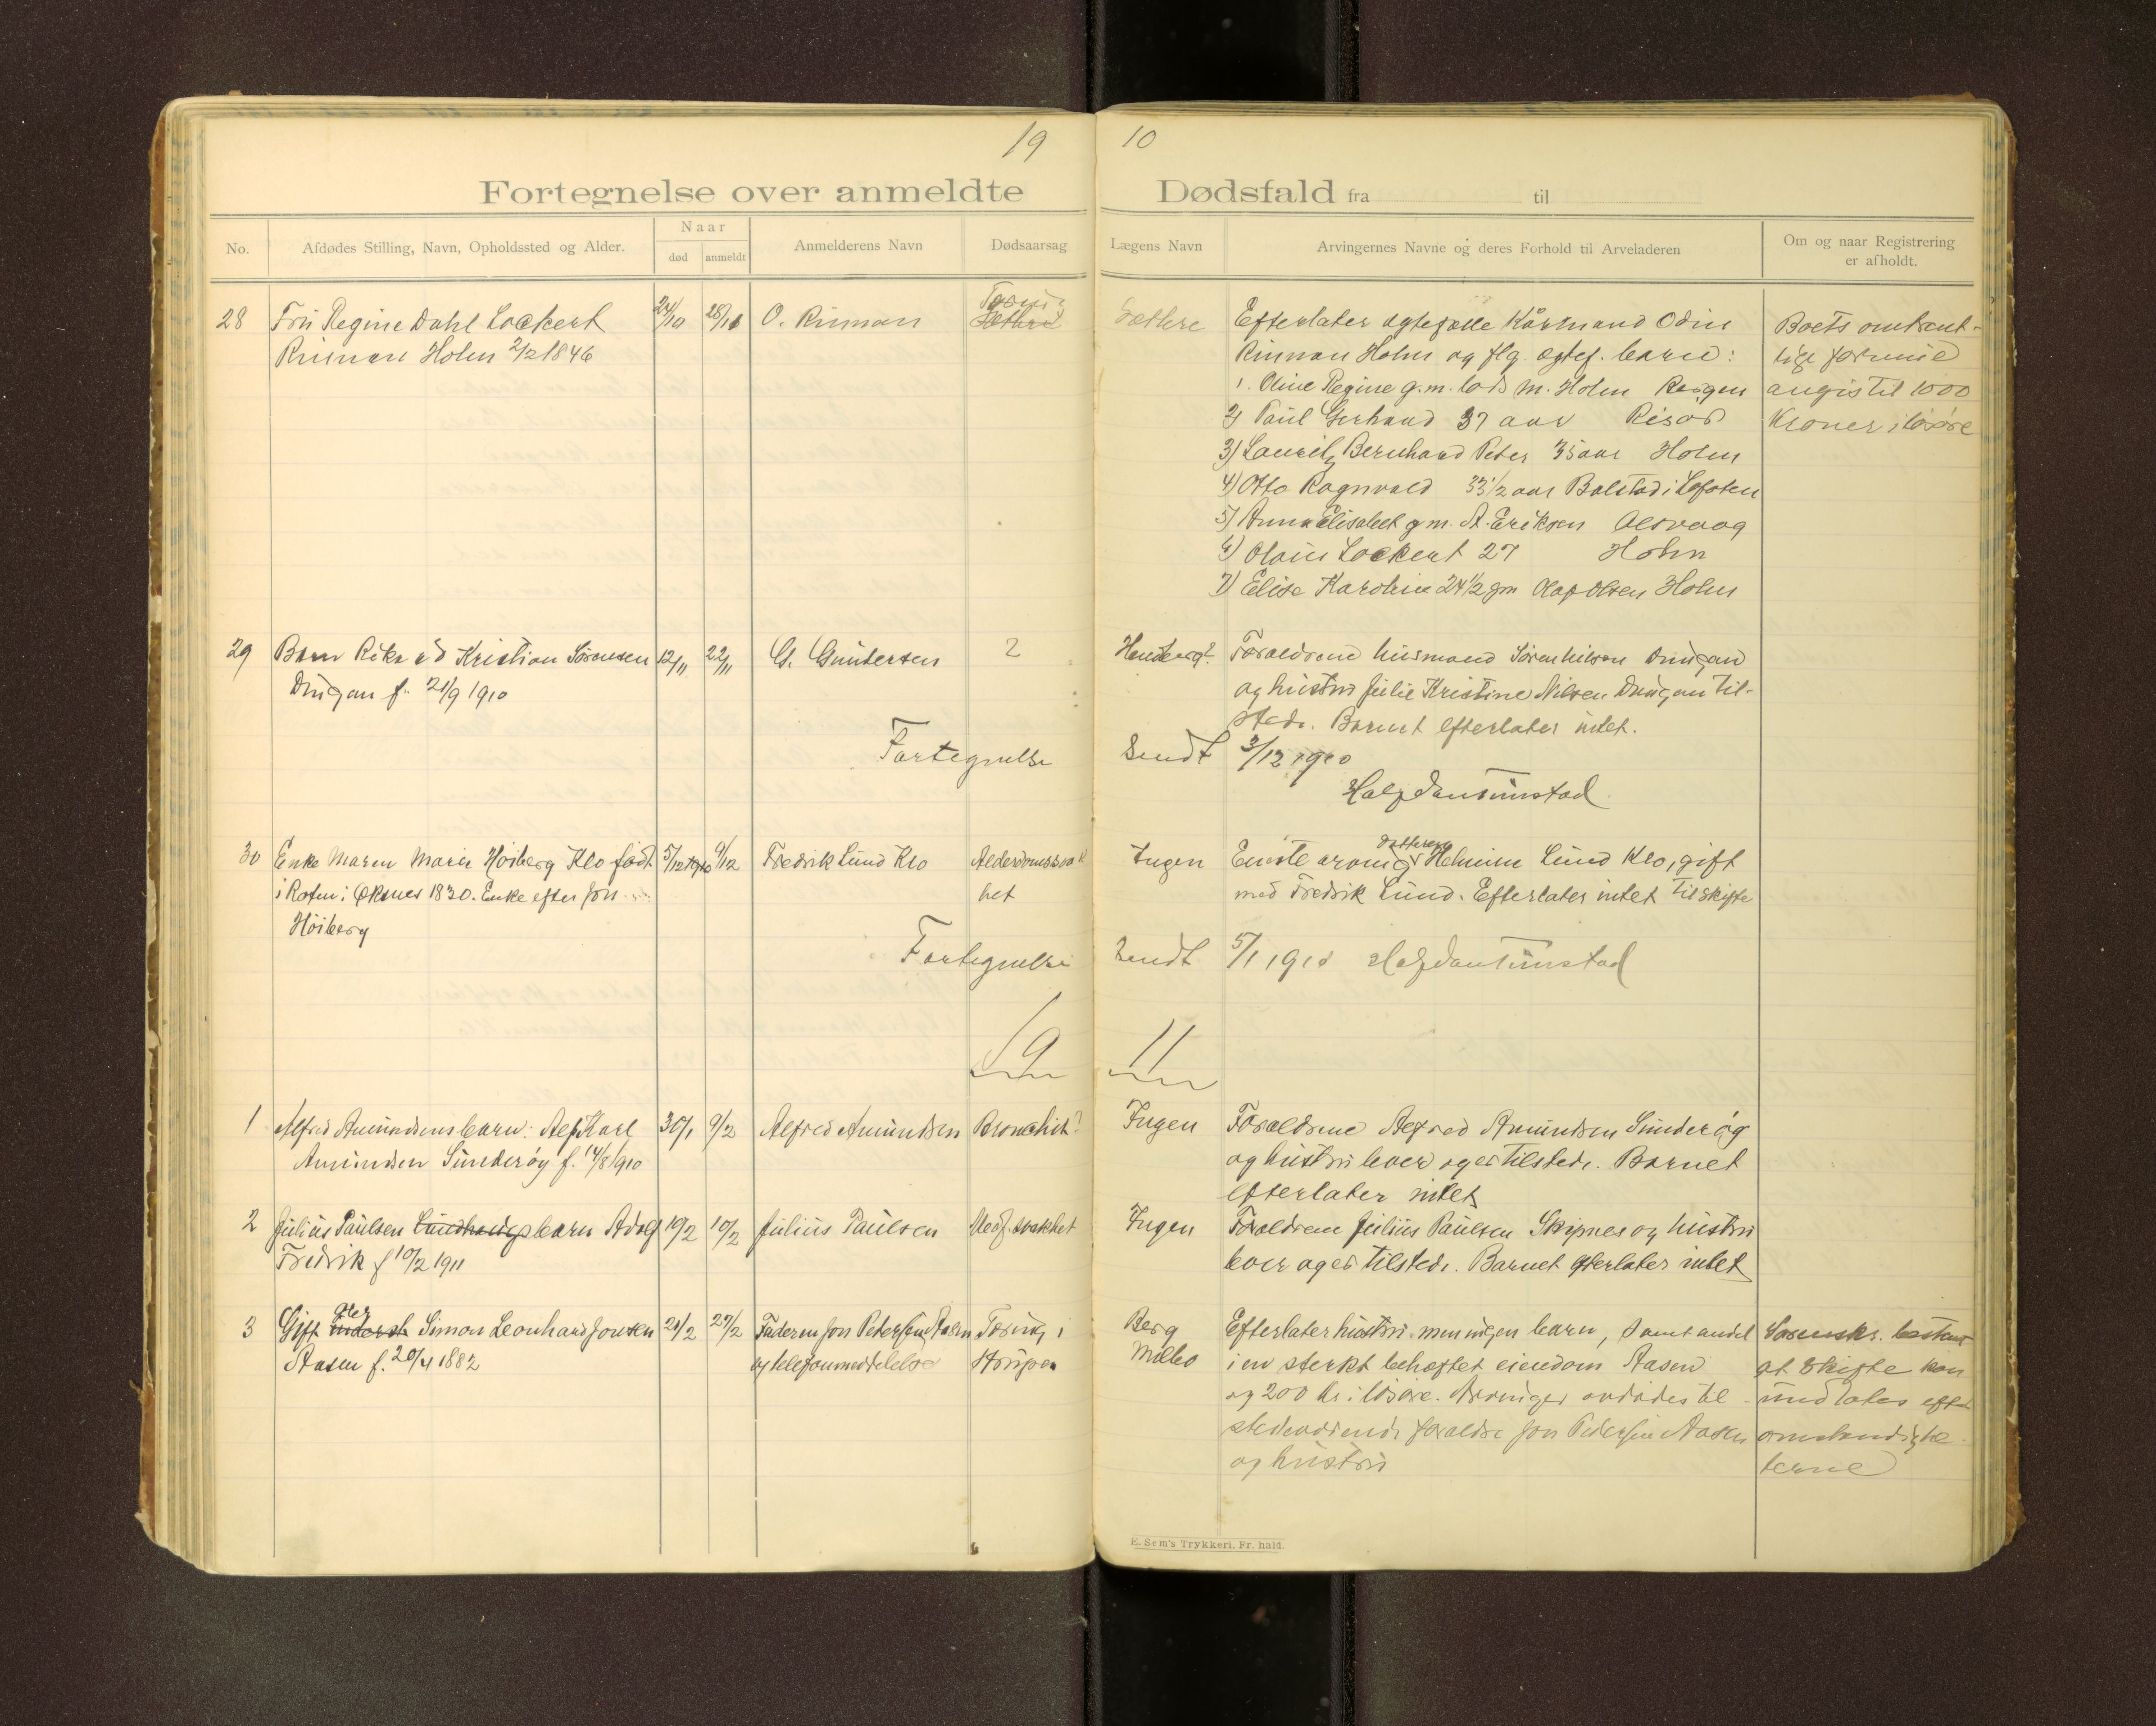 19 10
Fortegnelse over anmeldte Dødsfald fra til
No.
Afdødes Stilling, Navn, Opholdssted og Alder.
Naar
død
anmeldt
Anmelderens Navn
Dødsaarsag
Lægens Navn
Arvingernes Navne og deres Forhold til Arveladeren
Om og naar Registrering
er afholdt.
28 Fru Regine Dahl Lockert
Rinnan Holm 2/2 1846
24/10
28/10
O. Rinnan
Sæthre
Sæthre
Efterlater ægtefælle Kårmand Odin
Rinnan Holm og flg. ægtef. barn:
1. Oline Regine g.m. lods M. Holm
2) Paul Gerhard 37 aar Risør
3) Lauritz Bernhard Peter 35 aar Holm
4) Otto Ragnvald 33 1/2 aar Balstad i Lofoten
5) Anna Elisabet g m. A. Eriksen Alsvaag
6) Olaus Lockert 27 Holm
7) Elise Karoline 24 1/2 gm Olaf Olsen Holm
Boets omtrent-
lige formue
angis til 1000
Kroner i løsøre
29 Barn Rikard Kristian Sørensen
Dungan f. 21/9 1910
12/11
22/11
G. Gundersen
?
Forældrene husmand Søren Nilsen Dungan
og hustru Julie Kristine Nilsen Dungan til-
stede. Barnet efterlater intet.
Fortegnelse Sendt 3/12 1910
Halfdan Unstad
30 Enke Maren Marie Høiberg Klo født
i Roten i Øksnes 1830. Enke efter Jon
Høiberg
5/12 1910
9/12
Fredrik Lund Klo
Alderdomssvak
het
Ingen
Eneste arving datteren Helmine Lund Klo, gift
med Fredrik Lund. Efterlater intet til skifte
Fortegnelse Sendt 5/1 1910 Halfdan Unstad
19 11
1 Alfred Amundsens barn: Alf Karl
Amundsen Sunderøy f. 14/8 1910
30/1
9/2
Alfred Amundsen
Bronchit?
Ingen
Forældrene Alfred Amundsen Sunderøy
og hustru lever og er tilstede. Barnet
efterlater intet
2 Julius Paulsen barn Adolf
Fredrik f 10/2 1911
10/2
10/2
Julius Paulsen
Medf. svakhet
Ingen
Forældrene Julius Paulsen Skipnes og hustru
lever og er tilstede. Barnet efterlater intet
3 Gift Simon Leonhard Jonsen
Aasen f. 20/4 1882
21/2
27/2
Faderen Jon Pedersen Aasen
og telefonmeddelelse
Tæring i
Strupen
Berg
Melbo
Efterlater hustru men ingen barn, samt andel
i en sterkt behæftet eiendom Aasen
og 200 kr. i løsøre. Arvinger avdødes til-
stedeværende forældre Jon Pedersen Aasen
og hustru
Sorensk. bestemt
at Skifte kan
undlates efter
omstændighe
terne
E. Sem's Trykkeri, Fr. hald.